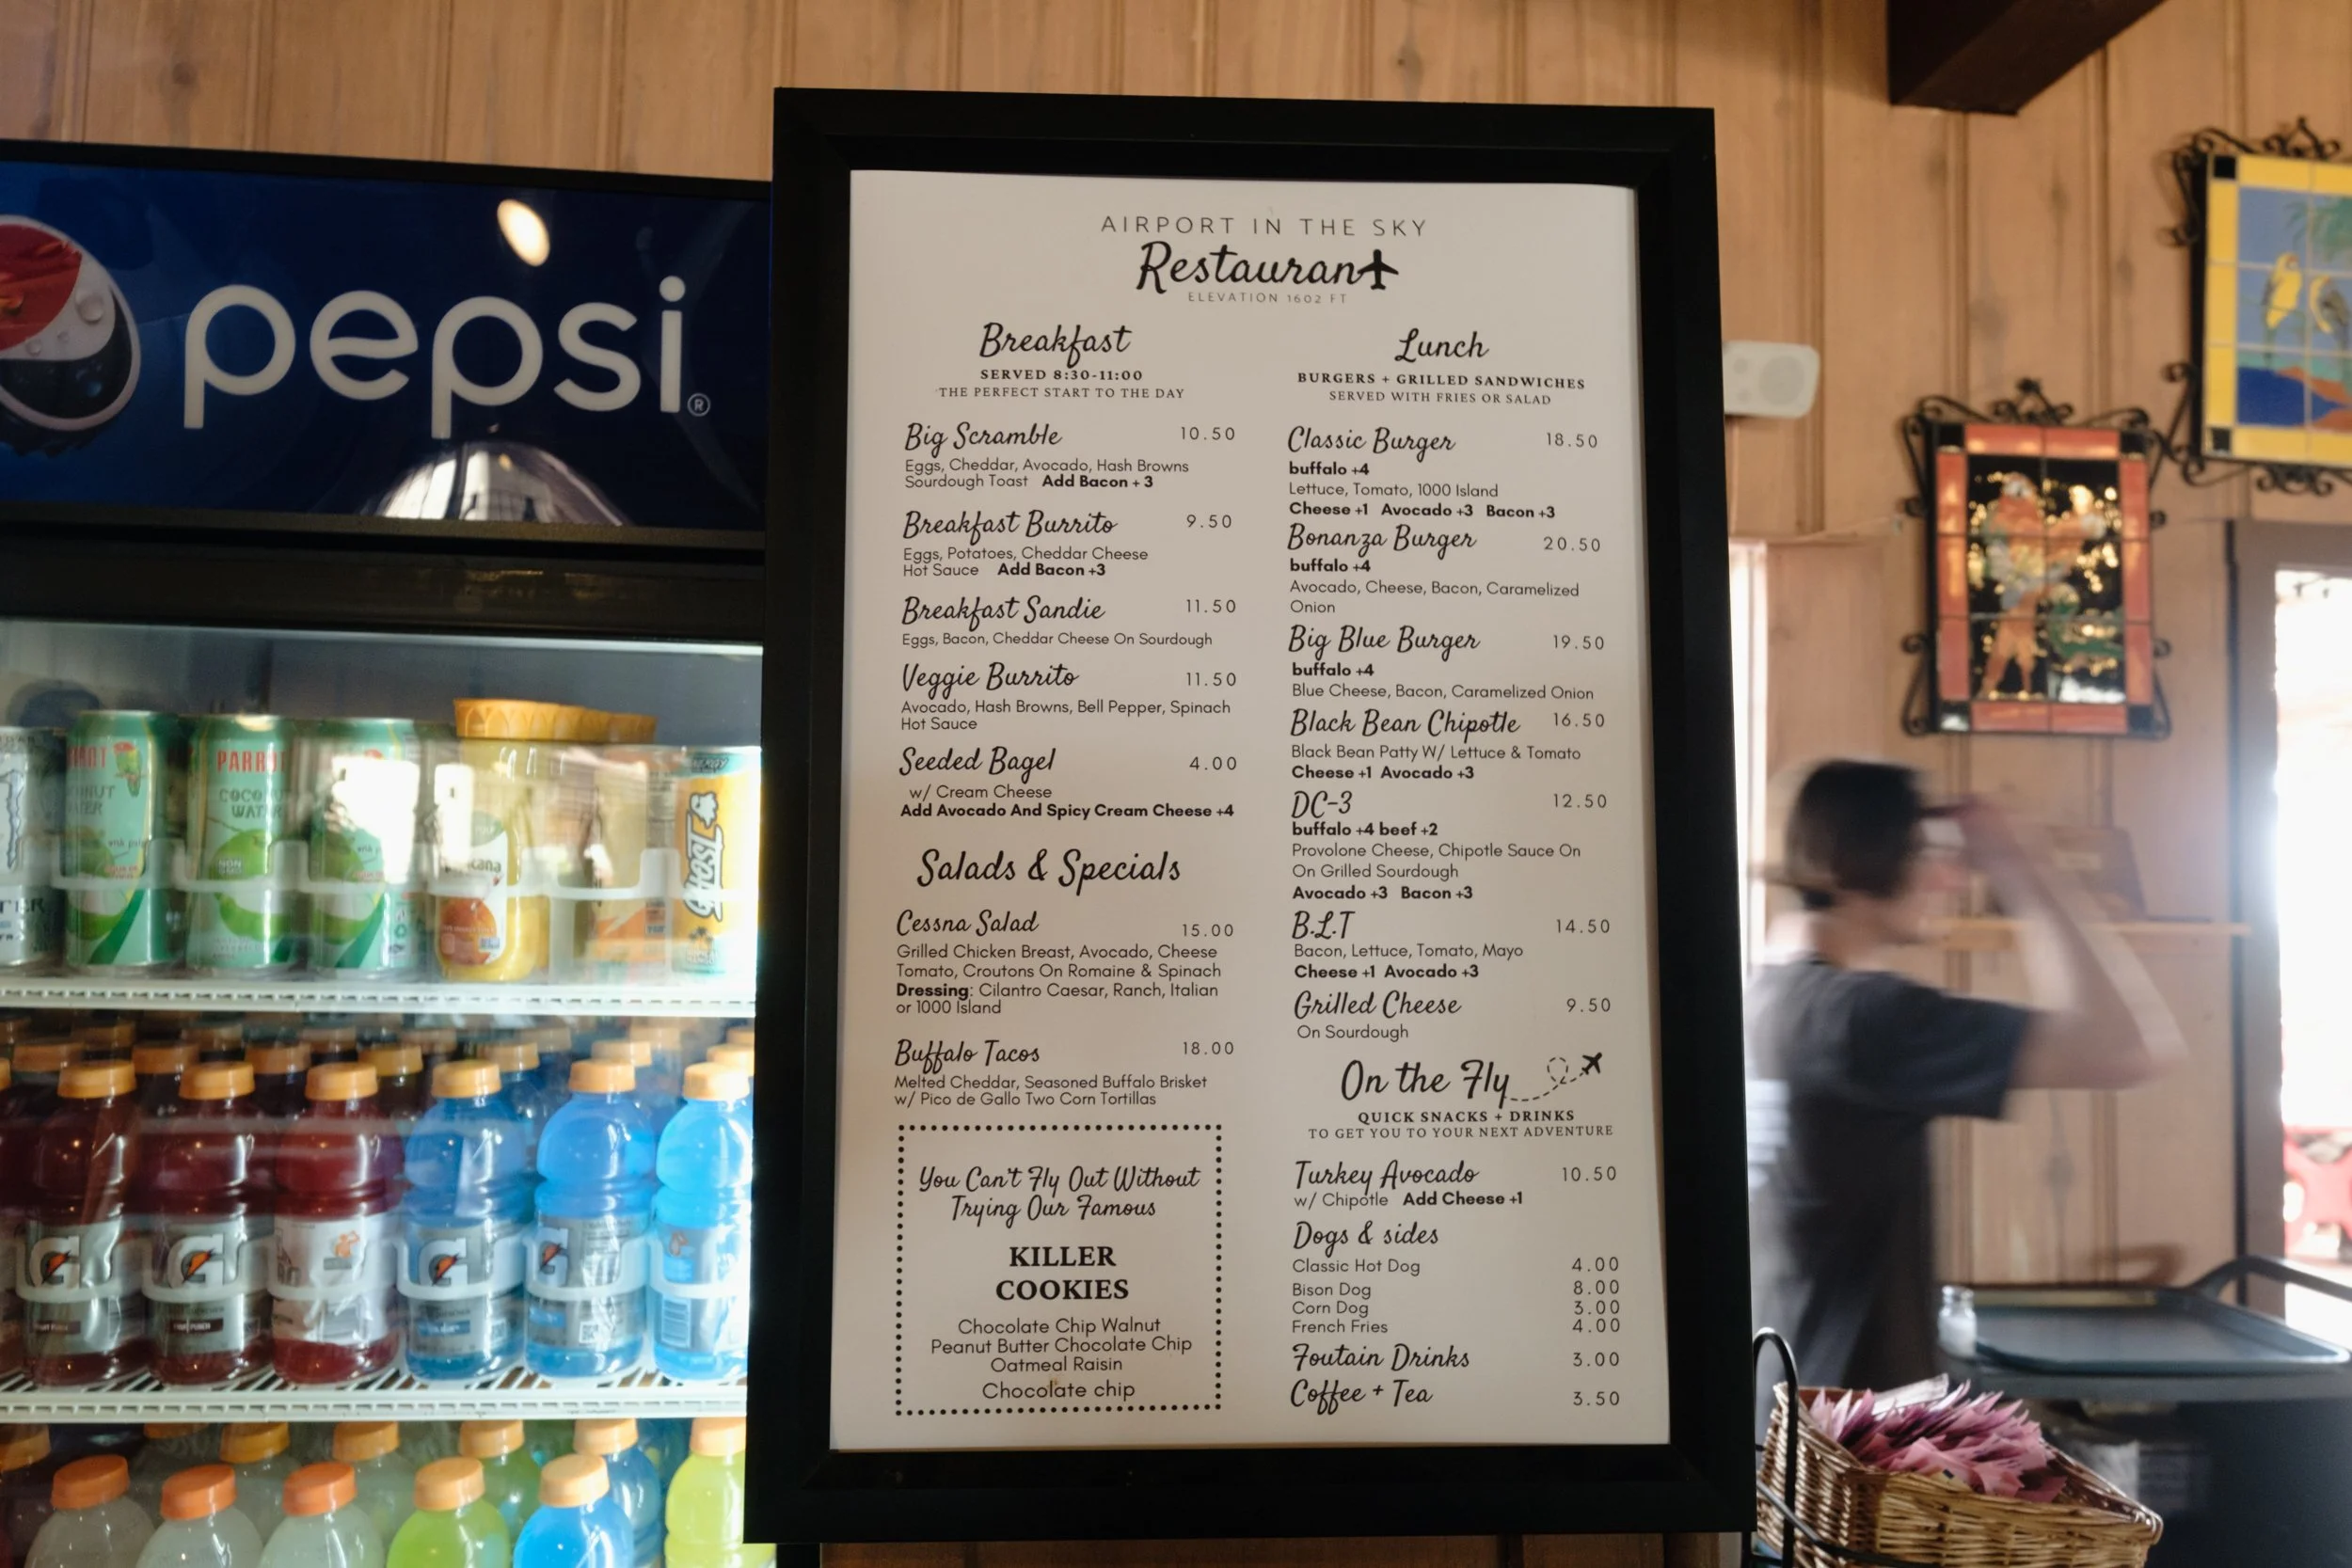 pepsi®
AIRPORT IN THE SKY
Restaurant
ELEVATION 1602 FT
Breakfast
SERVED 8:30-11:00
THE PERFECT START TO THE DAY
Big Scramble 10.50
Eggs, Cheddar, Avocado, Hash Browns
Sourdough Toast Add Bacon + 3
Breakfast Burrito 9.50
Eggs, Potatoes, Cheddar Cheese
Hot Sauce Add Bacon +3
Breakfast Sandie 11.50
Eggs, Bacon, Cheddar Cheese On Sourdough
Veggie Burrito 11.50
Avocado, Hash Browns, Bell Pepper, Spinach
Hot Sauce
Seeded Bagel 4.00
w/ Cream Cheese
Add Avocado And Spicy Cream Cheese +4
Salads & Specials
Cessna Salad 15.00
Grilled Chicken Breast, Avocado, Cheese
Tomato, Croutons On Romaine & Spinach
Dressing: Cilantro Caesar, Ranch, Italian
or 1000 Island
Buffalo Tacos 18.00
Melted Cheddar, Seasoned Buffalo Brisket
w/ Pico de Gallo Two Corn Tortillas
You Can't Fly Out Without
Trying Our Famous
KILLER
COOKIES
Chocolate Chip Walnut
Peanut Butter Chocolate Chip
Oatmeal Raisin
Chocolate chip
Lunch
BURGERS + GRILLED SANDWICHES
SERVED WITH FRIES OR SALAD
Classic Burger 18.50
buffalo +4
Lettuce, Tomato, 1000 Island
Cheese +1 Avocado +3 Bacon +3
Bonanza Burger 20.50
buffalo +4
Avocado, Cheese, Bacon, Caramelized
Onion
Big Blue Burger 19.50
buffalo +4
Blue Cheese, Bacon, Caramelized Onion
Black Bean Chipotle 16.50
Black Bean Patty W/ Lettuce & Tomato
Cheese +1 Avocado +3
DC-3 12.50
buffalo +4 beef +2
Provolone Cheese, Chipotle Sauce On
On Grilled Sourdough
Avocado +3 Bacon +3
B.L.T 14.50
Bacon, Lettuce, Tomato, Mayo
Cheese +1 Avocado +3
Grilled Cheese 9.50
On Sourdough
On the Fly
QUICK SNACKS + DRINKS
TO GET YOU TO YOUR NEXT ADVENTURE
Turkey Avocado 10.50
w/ Chipotle Add Cheese +1
Dogs & sides
Classic Hot Dog 4.00
Bison Dog 8.00
Corn Dog 3.00
French Fries 4.00
Foutain Drinks 3.00
Coffee + Tea 3.50
PARROT
COCONUT
WATER
NON
GHOST
G
G
G
G